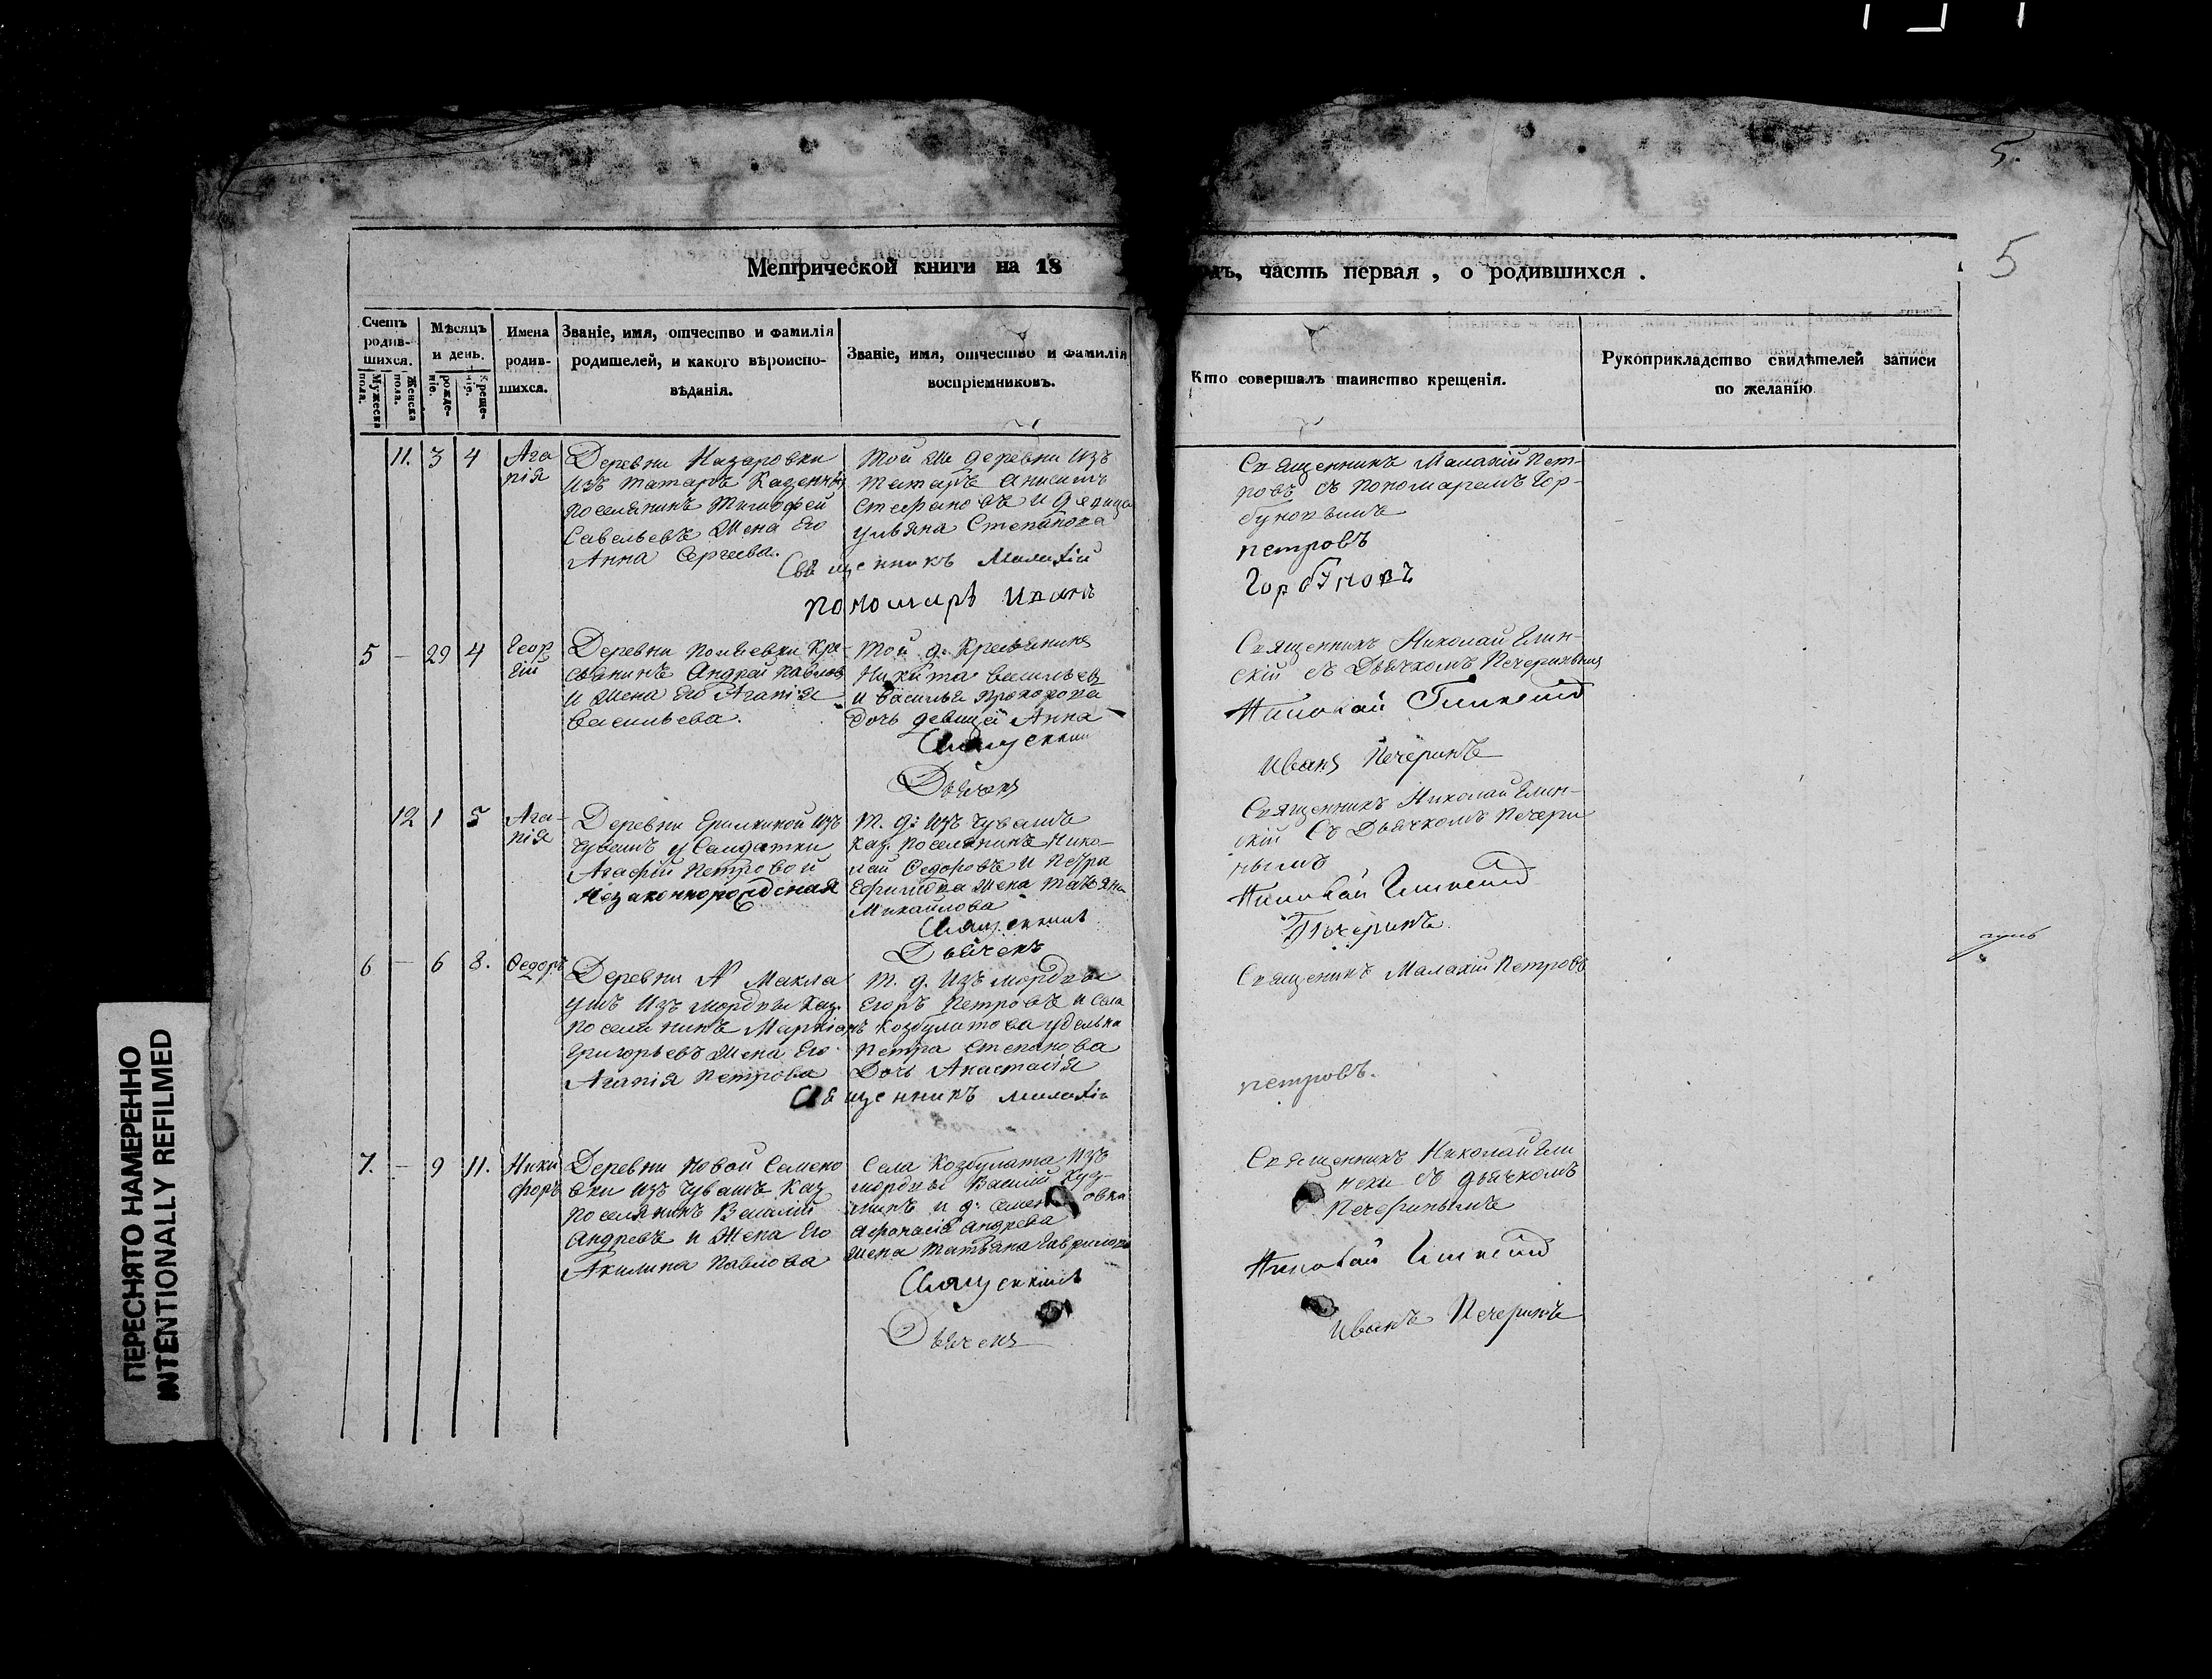 5.
5
Метрической книги на 18
дъ, часть первая, о родившихся.
Счетъ родив-шихся.
Мужеска пола.
Женска пола.
Мѣсяцъ и день.
рожде-нiе.
креще-нiе.
Имена родив-шихся.
Званiе, имя, отчество и фамилiя
родителей, и какого вѣроиспо-
вѣданiя.
Званiе, имя, отчество и фамилiя
воспрiемниковъ.
Кто совершалъ таинство крещенiя.
Рукоприкладство свидѣтелей записи
по желанiю
11. 3 4
Ага
пiя
Деревни Казаровки
изъ татаръ Казенный
поселянинъ Тимофей
Савельевъ Жена Его
Анна Сергеева.
Той же деревни изъ
татаръ Анисимъ
Стефановъ и девица
Ульяна Степанова
Священникъ Малахiй
Пономарь Иванъ
Священникъ Малахiй Пет-
ровъ съ пономаремъ Гор-
буновымъ
Петровъ
Горбуновъ
5 — 29 4
Геор
гiй
Деревни Кре-
стьянинъ Андрей Павловъ
и Жена Его Агапiя
Васильева.
Той д. Крестьянинъ
Никита Васильевъ
и Василья Прохорова
Дочь девица Анна
Священник
Дьячекъ
Священникъ Николай Глин-
скiй съ Дьячкомъ Печеринымъ
Николай Глинскiй
Иванъ Печеринъ
12 1 5
Ага-
пiя
Деревни Ерилкиной изъ
Чувашъ у Салдатки
Агафiи Петровой
Незаконнорожденная
Т. д: изъ Чувашъ
Каз. поселянинъ Нико-
лай Федоровъ и Петра
Ефимова жена Татьяна
Михайлова
Священникъ
Дьячекъ
Священникъ Николай Глин-
скiй Съ Дьячкомъ Печери
нымъ
Николай Глинскiй
Печеринъ.
6 — 6 8.
Федоръ
Деревни Н Макла
ушъ изъ мордвы Каз.
поселянинъ Маркiанъ
Григорьевъ Жена Его
Агапiя Петрова
Т. д. Изъ мордвы
Егоръ Петровъ и Села
Козбулатова удельна
Петра Степанова
Дочь Анастасiя
Священникъ Малахiй
Священикъ Малахiй Петровъ
Петровъ.
7. — 9 11.
Ники
форъ
Деревни Новой Семено
вки изъ Чувашъ Каз
поселянинъ Василiй
Андреевъ и Жена Его
Акилина Павлова
Села Козбулата изъ
мордвы Василiй Куз-
минъ и д: Семеновки
Афонасiя Андрева
жена Татьяна Гаврилова
Священникъ
Дьячекъ
Священникъ Николай Гли
нски съ дьячкомъ
Печеринымъ
Николай Глинскiй
Иванъ Печеринъ
ПЕРЕСНЯТО НАМЕРЕННО
INTENTIONALLY REFILMED